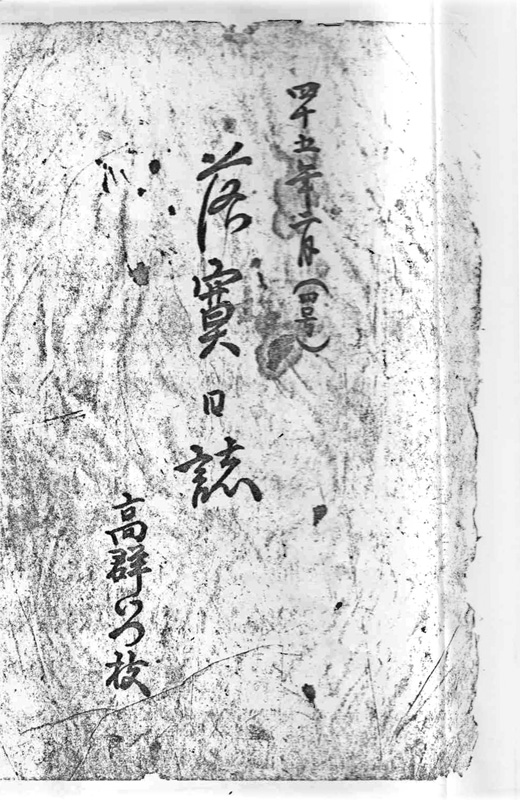 四十五年二月（四号）
落實日誌
高群いつ枝